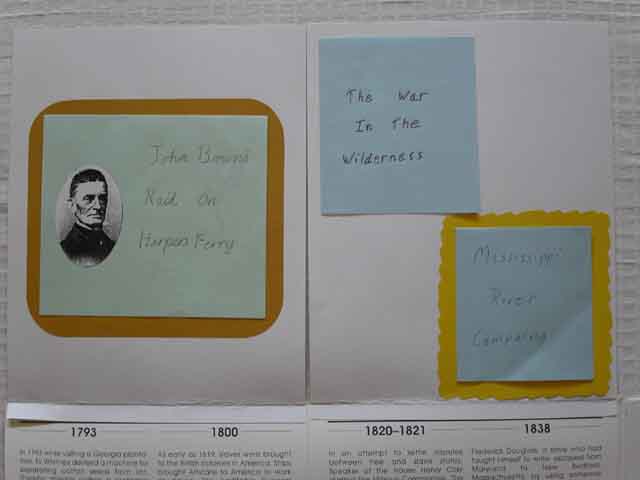 John Browns
Raid On
Harpers Ferry
The War
In The
Wilderness
Mississippi
River
Campaings
1793
In 1793 while visiting a Georgia planta-
tion, Eli Whitney devised a machine for
separating cotton seeds from lint.
1800
As early as 1619, slaves were brought
to the British colonies in America. Ships
brought Africans to America to work
1820–1821
In an attempt to settle disputes
between free and slave states,
Speaker of the House Henry Clay
1838
Frederick Douglass, a slave who had
taught himself to write, escaped from
Maryland to New Bedford,
Massachusetts by using someone